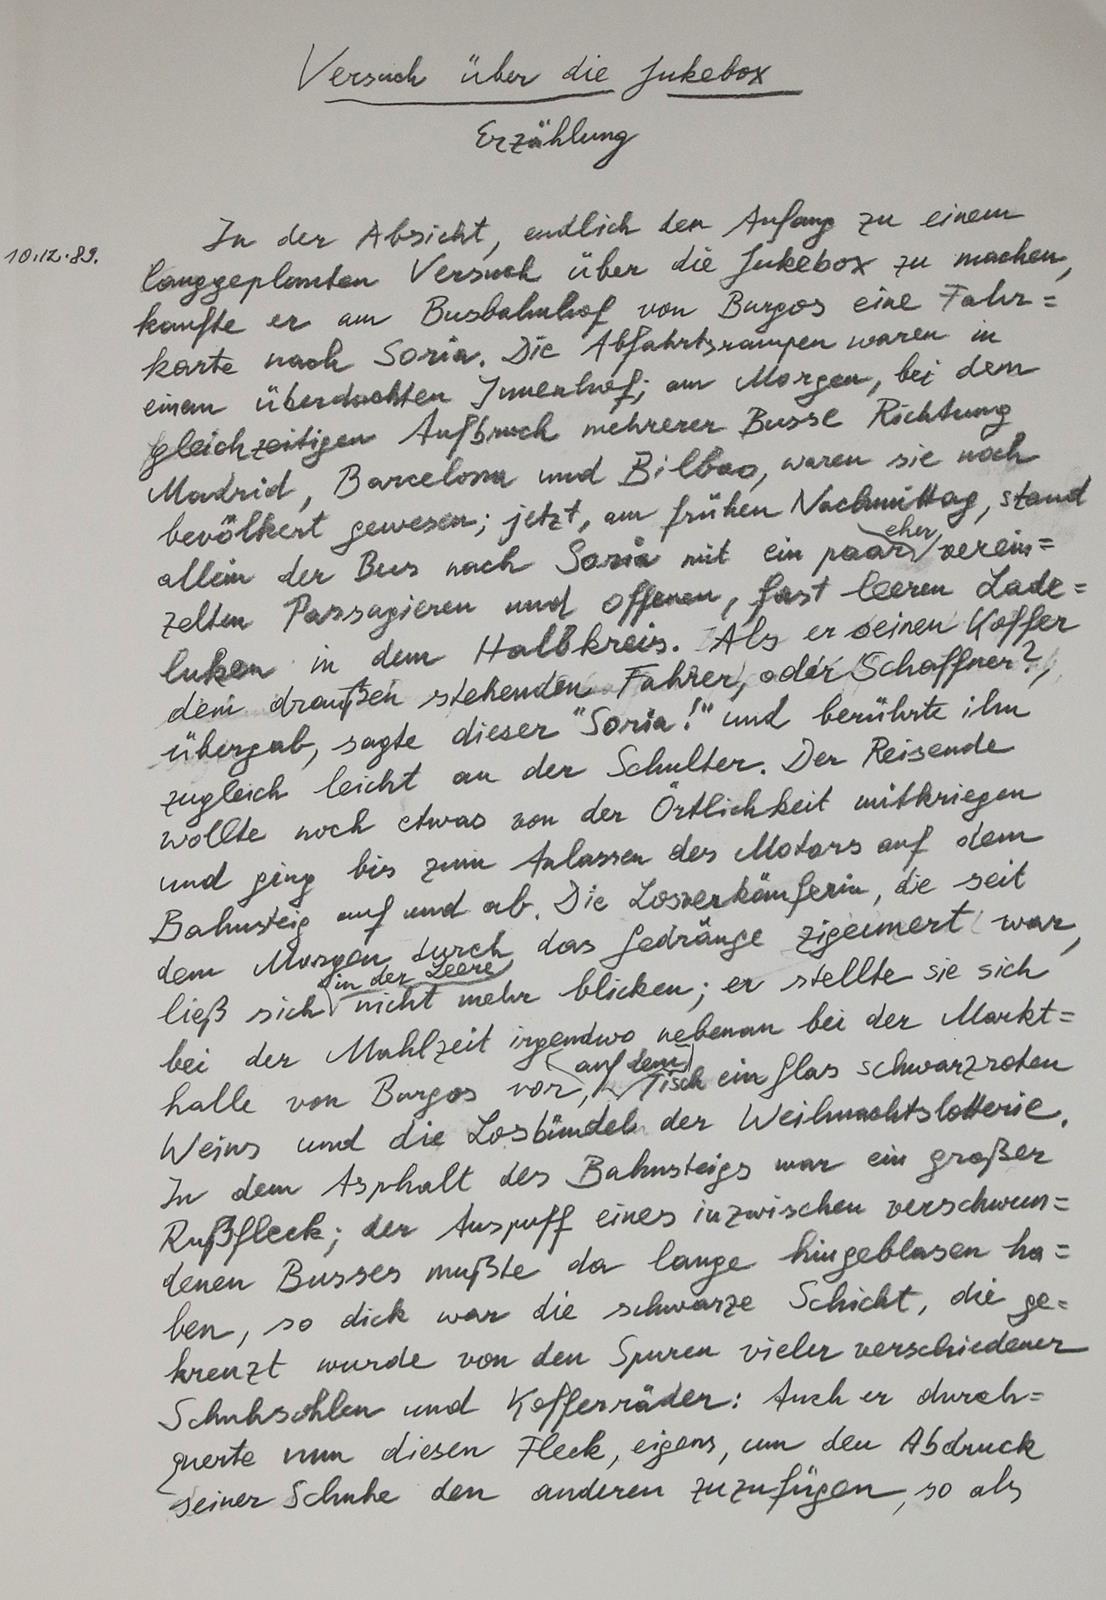 Versuch über die Jukebox
Erzählung
10.12.89.
In der Absicht, endlich den Anfang zu einem
langgeplanten Versuch über die Jukebox zu machen,
kaufte er am Busbahnhof von Burgos eine Fahr=
karte nach Soria. Die Abfahrtsrampen waren in
einem überdachten Innenhof; am Morgen, bei dem
gleichzeitigen Aufbruch mehrerer Busse Richtung
Madrid, Barcelona und Bilbao, waren sie noch
bevölkert gewesen; jetzt, am frühen Nachmittag, stand
allein der Bus nach Soria mit ein paar eher verein=
zelten Passagieren und offenen, fast leeren Lade=
luken in dem Halbkreis. Als er seinen Koffer
dem draußen stehenden Fahrer, oder Schaffner?,
übergab, sagte dieser "Soria!" und berührte ihn
zugleich leicht an der Schulter. Der Reisende
wollte noch etwas von der Örtlichkeit mitkriegen
und ging bis zum Anlassen des Motors auf dem
Bahnsteig auf und ab. Die Losverkäuferin, die seit
dem Morgen durch das Gedränge zigeunert war,
ließ sich in der Leere nicht mehr blicken; er stellte sie sich
bei der Mahlzeit irgendwo nebenan bei der Markt=
halle von Burgos vor, auf dem Tisch ein Glas schwarzroten
Weins und die Losbündel der Weihnachtslotterie.
In dem Asphalt des Bahnsteigs war ein großer
Rußfleck; der Auspuff eines inzwischen verschwun=
denen Busses mußte da lange hingeblasen ha=
ben, so dick war die schwarze Schicht, die ge=
kreuzt wurde von den Spuren vieler verschiedener
Schuhsohlen und Kofferräder: Auch er durch=
querte nun diesen Fleck, eigens, um den Abdruck
seiner Schuhe den anderen zuzufügen, so als